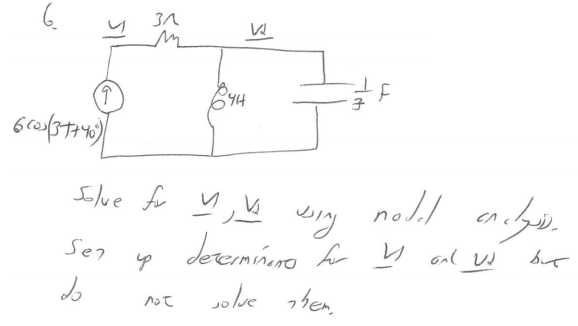 6.
V1 3Ω V2
4H
6cos(3t+40°)
Solve for V1, V2 using nodal analysis.
Set up determinants for V1 and V2 but
do not solve them.